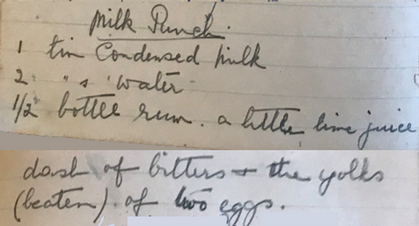 Milk Punch.
1 tin Condensed milk
2 " s water
1/2 bottle rum. a little lime juice
dash of bitters + the yolks
(beaten) of two eggs.